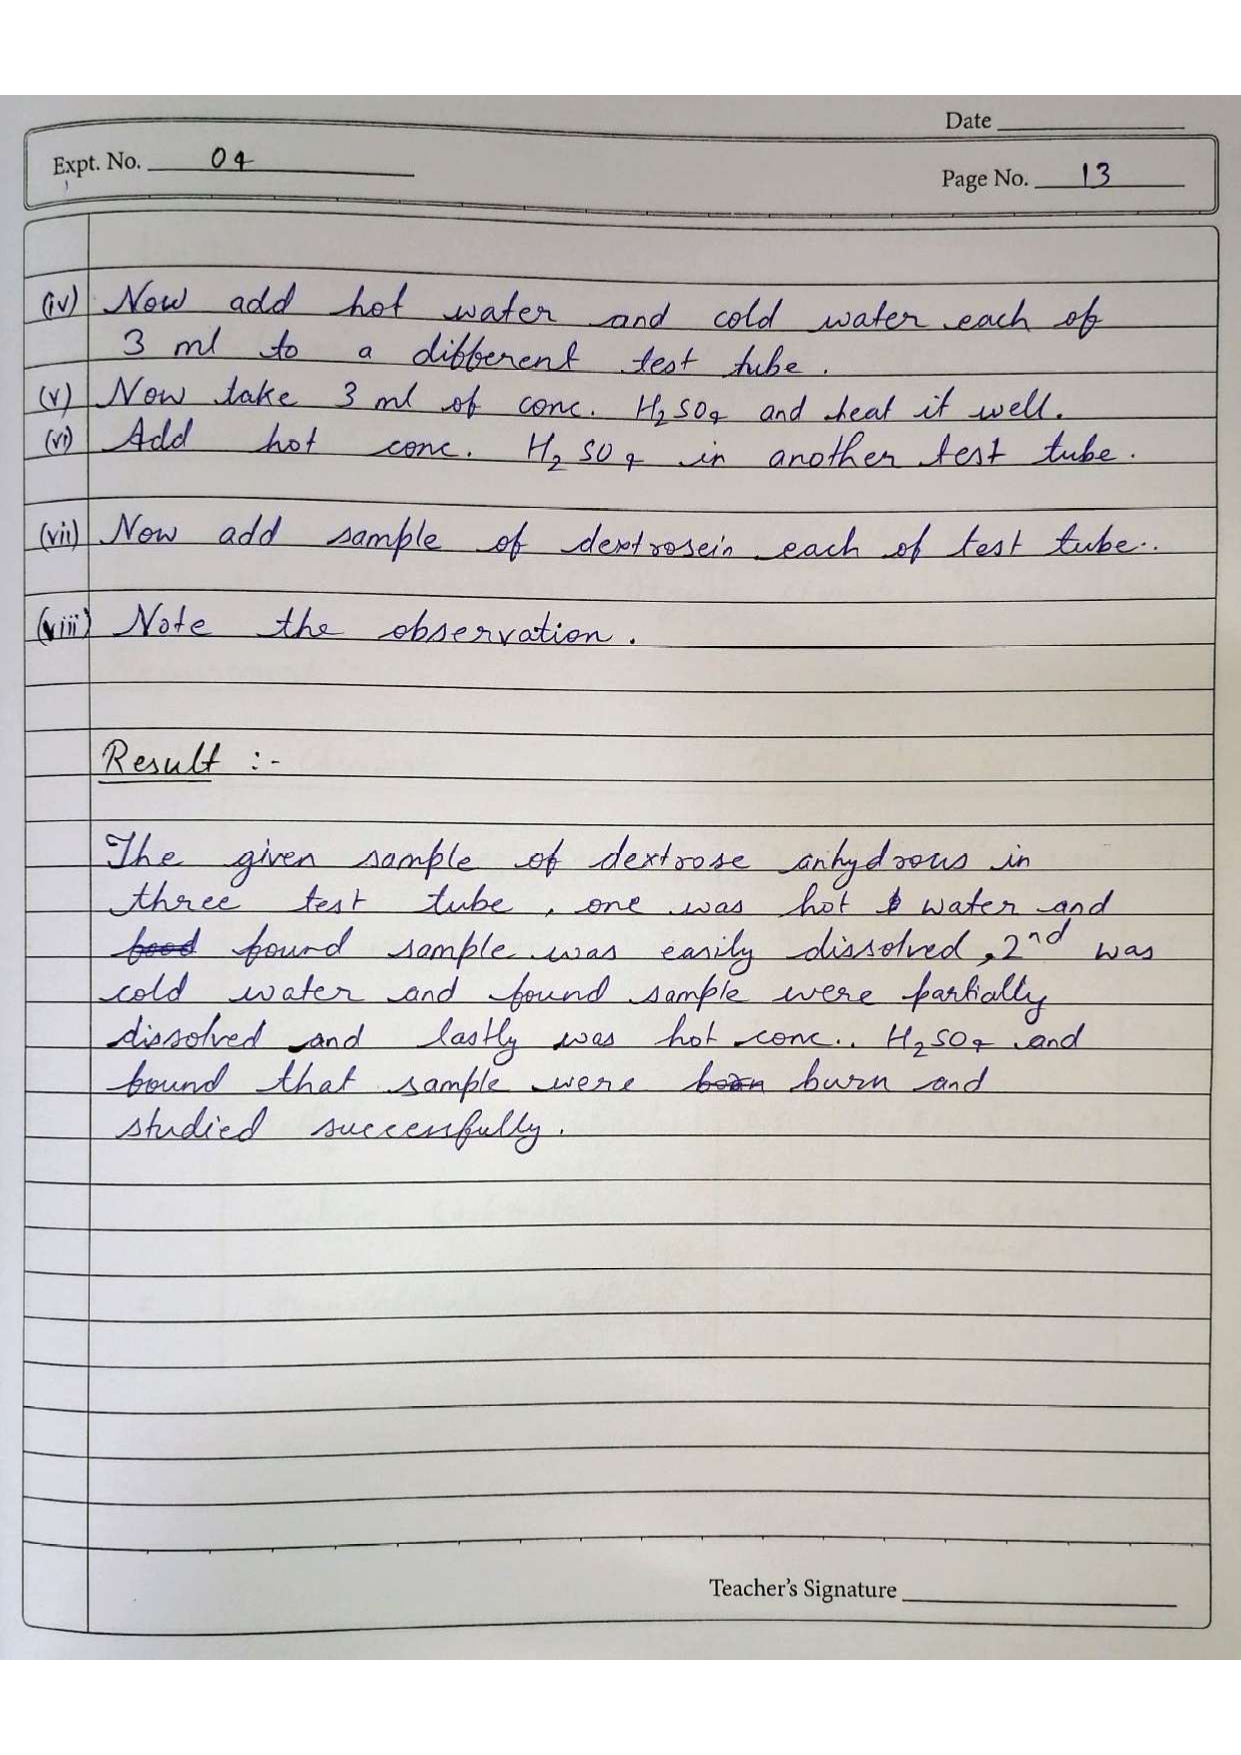 Date
Expt. No. 04
Page No. 13
(iv) Now add hot water and cold water each of
3 ml to a different test tube.
(v) Now take 3 ml of conc. H₂SO₄ and heat it well.
(vi) Add hot conc. H₂SO₄ in another test tube.
(vii) Now add sample of dextrosein each of test tube..
(viii) Note the observation.
Result :-
The given sample of dextrose anhydrous in
three test tube, one was hot water and
found sample was easily dissolved, 2nd was
cold water and found sample were partially
dissolved and lastly was hot conc.. H₂SO₄ and
found that sample were burn and
studied successfully.
Teacher's Signature